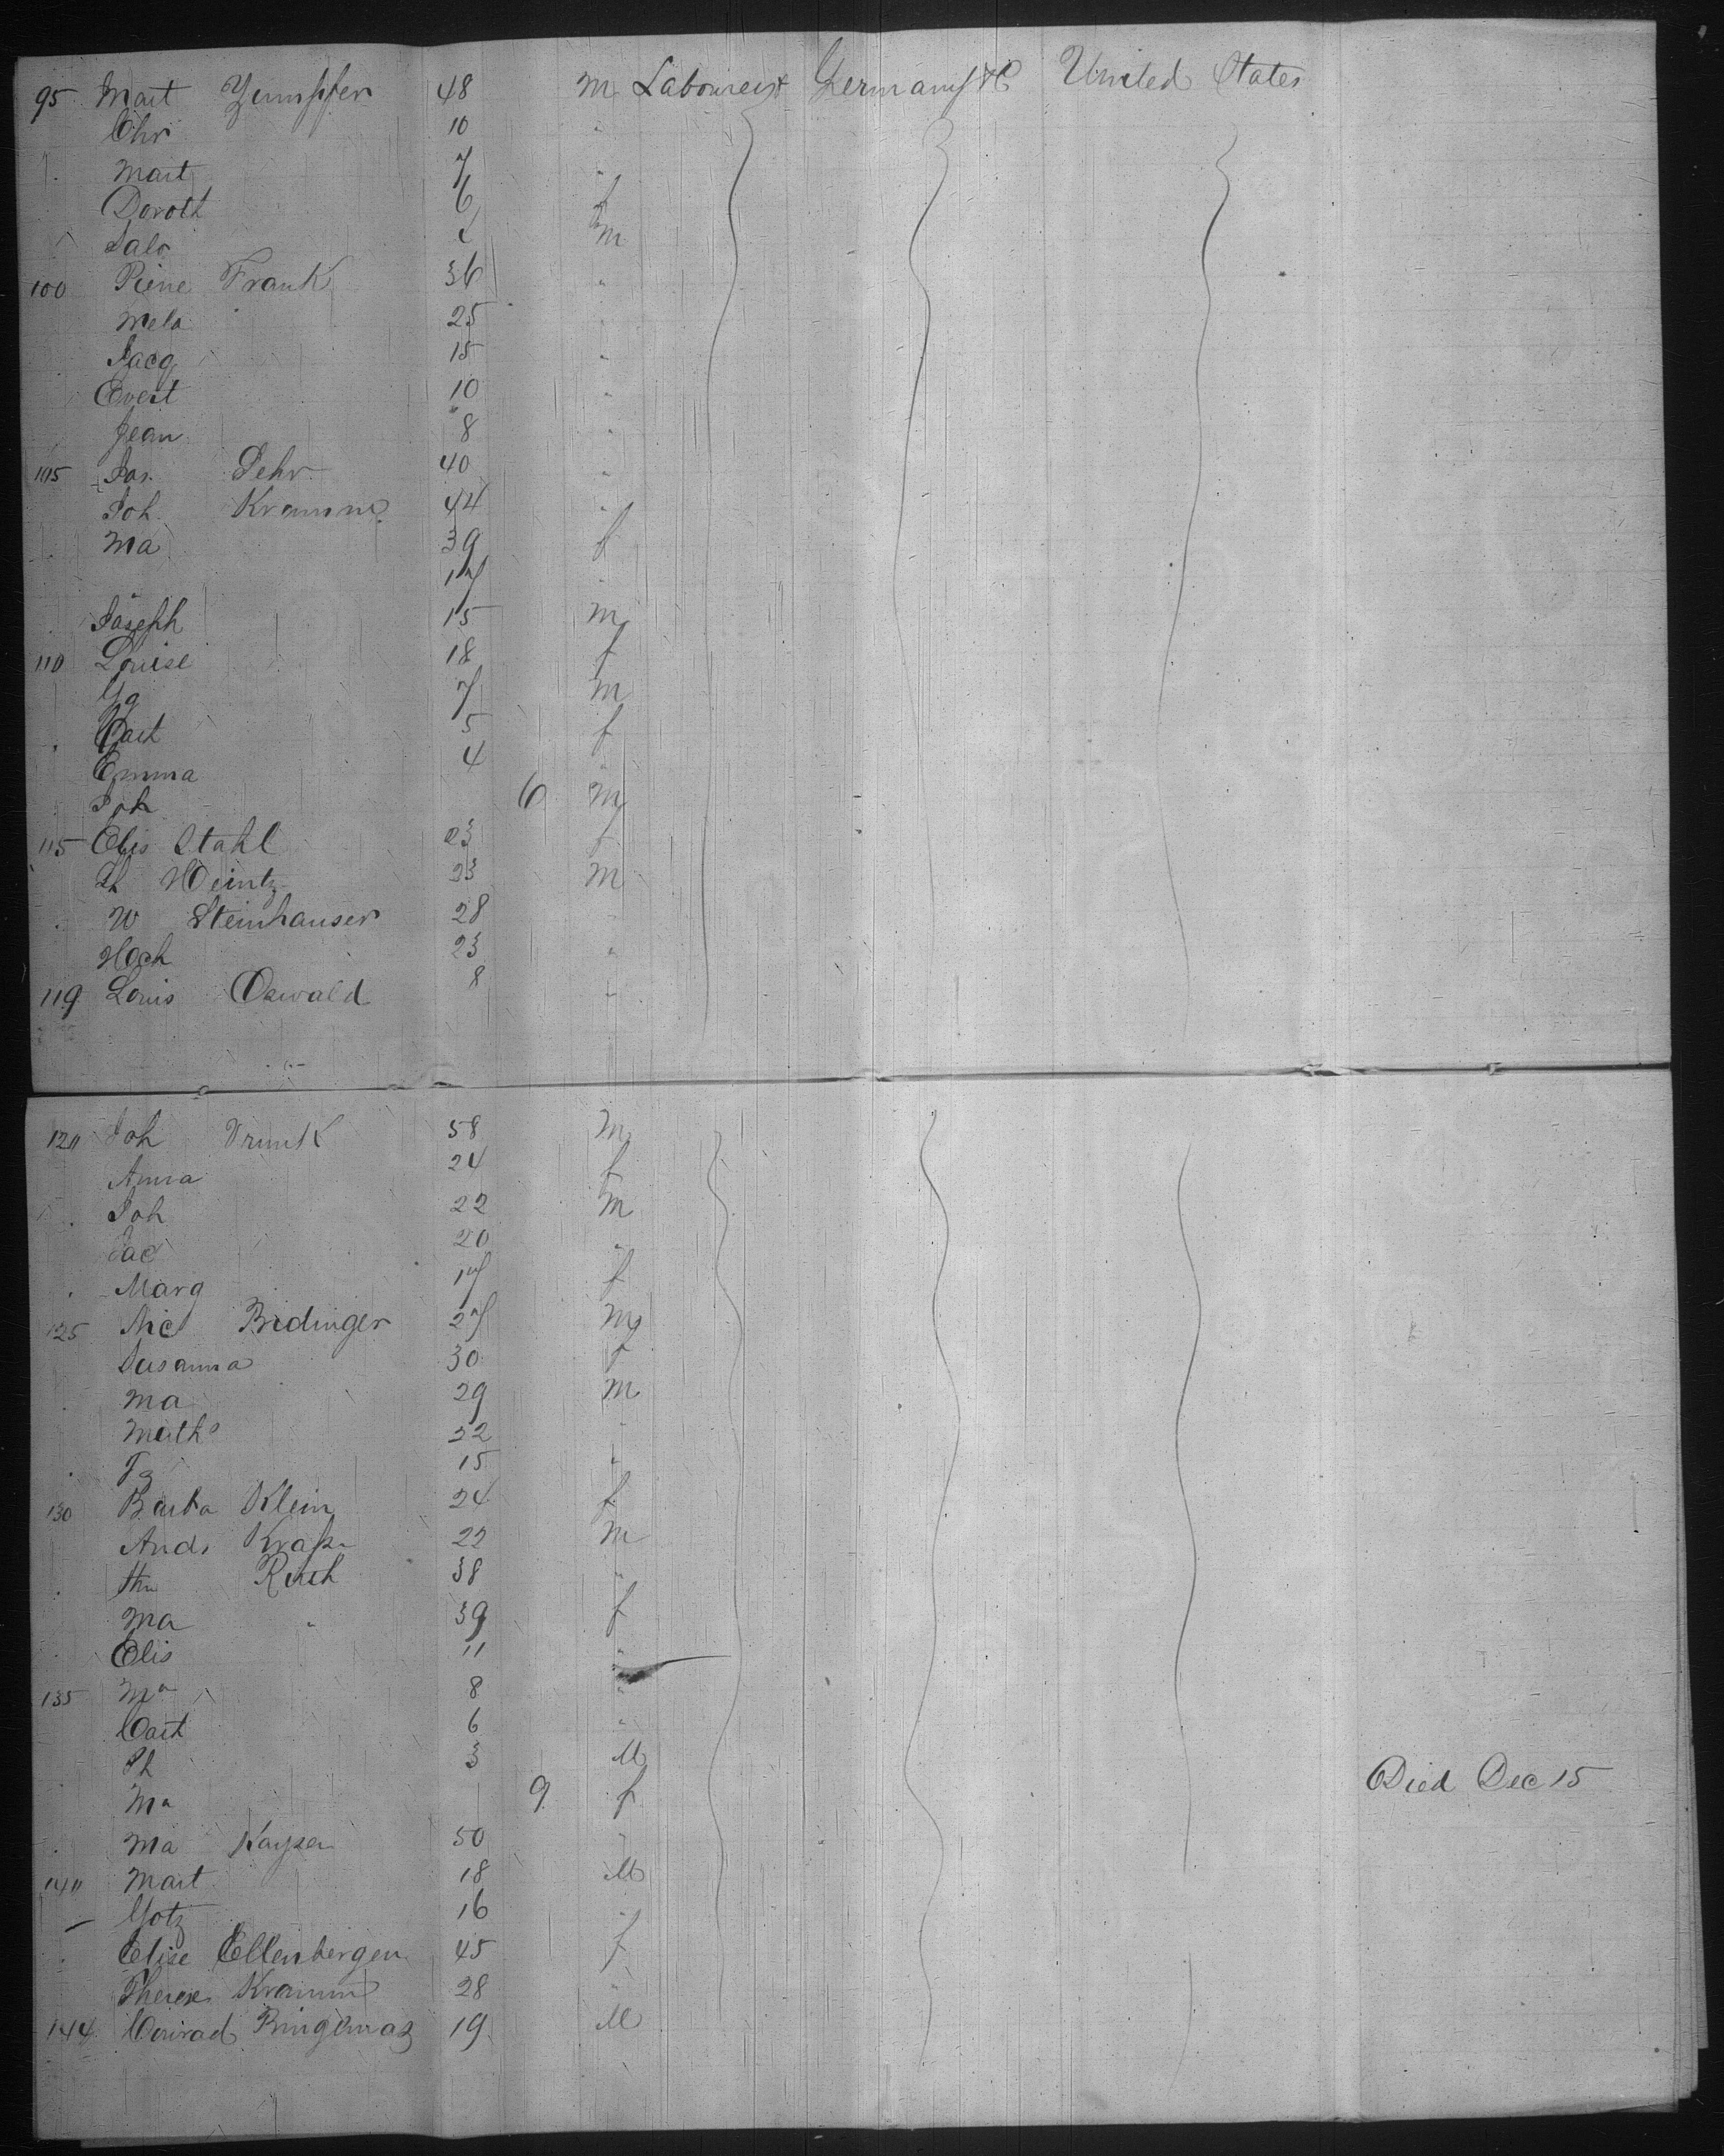 95 Mart Zumpfer 48 m Labourers & Germany &c United States
Chr 10 "
Mart 7 "
Doroth 6 f
Salo m
100 Pierre Frank 36 "
Mela " 25 "
Jacq 15 "
Evert 10 "
Jean 8 "
105 Jos. Lehr 40 "
Joh. Kramm 44 "
Ma 39 f
" 17 "
Joseph 15 m
110 Louise 18 f
Gg 7 m
Cart 5 f
Emma 4 "
Joh 6 m
115 Elis Stahl 23 f
Ph Heintz 23 m
W Steinhauser 28 "
Hch 23 "
119 Louis Oswald 8 "
120 Joh Trunk 58 m
Anna 24 f
Joh 22 m
Jac 20 "
Marg 17 f
125 Nic Bidinger 27 m
Susanna 30 f
Ma 29 m
Maths 22 "
15 "
130 Barba Klein 24 f
Andr 22 m
Hn 38 "
Ma " 39 f
Elis 11 "
135 Ma 8 "
Cart 6 "
Ph 3 M
Ma 9 f Died Dec 15
Ma Kayser 50 "
140 Mart 18 M
Gotz 16 "
Elise Ellenberger 45 f
Therese Kramm 28 "
144 Conrad 19 M